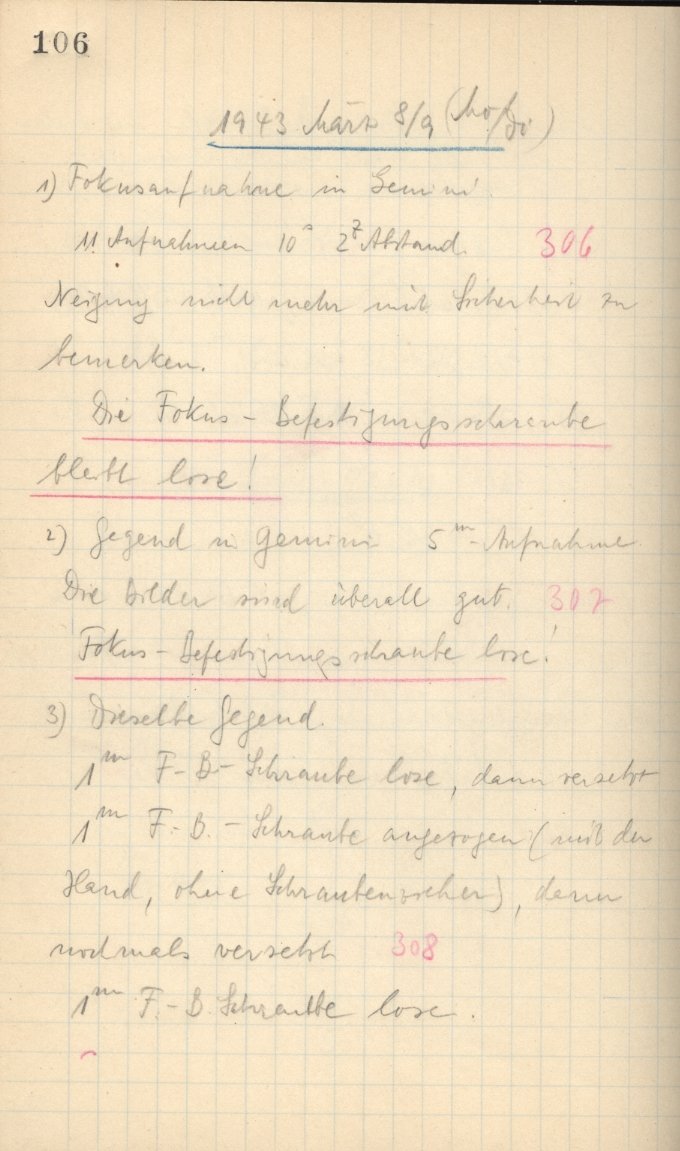 106
1943 März 8/9 (Mo/Di)
1) Fokusaufnahme in Gemini.
11 Aufnahmen 10ˢ 2ᶻ Abstand. 306
Neigung nicht mehr mit Sicherheit zu
bemerken.
Die Fokus - Befestigungsschraube
bleibt lose!
2) Gegend in Gemini 5ᵐ - Aufnahme.
Die Bilder sind überall gut. 307
Fokus - Befestigungsschraube lose!
3) Dieselbe Gegend.
1ᵐ F.-B.-Schraube lose, dann versetzt
1ᵐ F.-B.-Schraube angezogen (mit der
Hand, ohne Schraubenzieher), dann
nochmals versetzt 308
1ᵐ F.-B. Schraube lose.